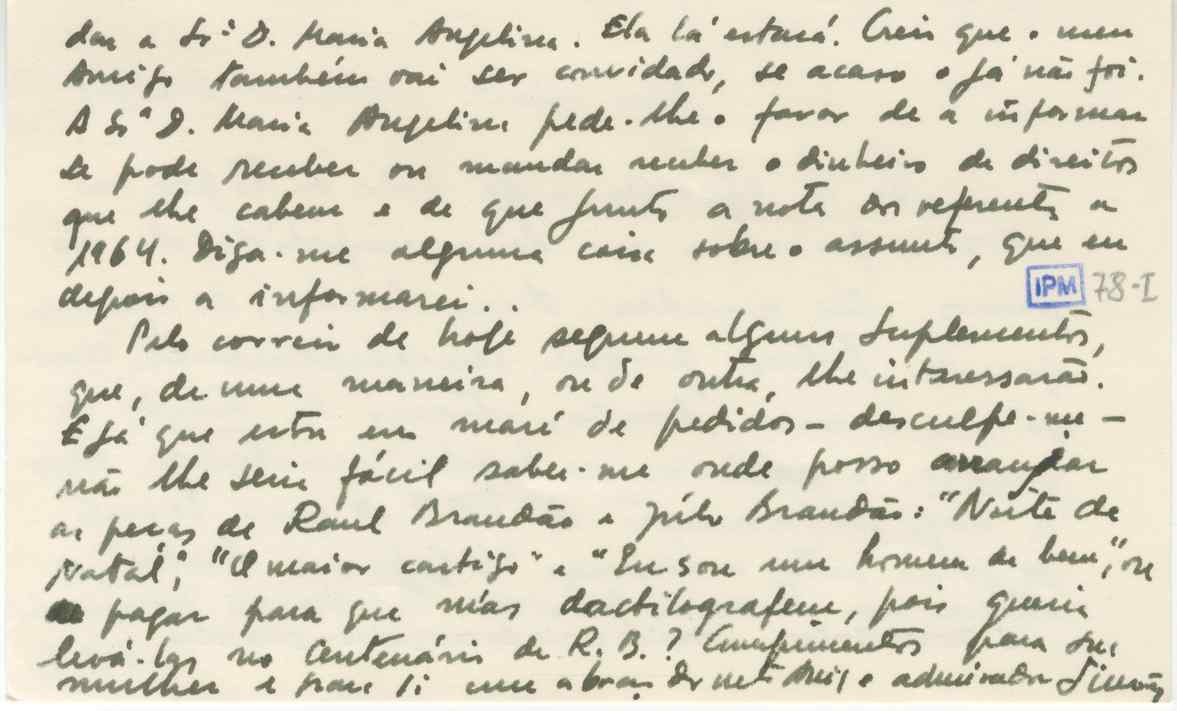 dar a Srª D. Maria Angelina. Ela lá estará. Creio que o meu
Amigo também vai ser convidado, se acaso o já não foi.
A Srª D. Maria Angelina pede-lhe o favor de a informar
se pode receber ou mandar receber o dinheiro de direitos
que lhe cabem e de que junto a nota dos referentes a
1964. Diga-me alguma coisa sobre o assunto, que eu
depois a informarei..
IPM 78-I
Pelo correio de hoje seguem alguns Suplementos,
que, de uma maneira, ou de outra, lhe interessarão.
E já que estou em maré de pedidos – desculpe-me –
não lhe seria fácil saber-me onde posso arranjar
as peças de Raul Brandão e Júlio Brandão: "Noite de
Natal", "O maior castigo" e "Eu sou um homem de bem", ou
pagar para que mas dactilografem, pois queria
levá-las no Centenário de R. B.? Cumprimentos para sua
mulher e para ti um abraço do admirador Simões